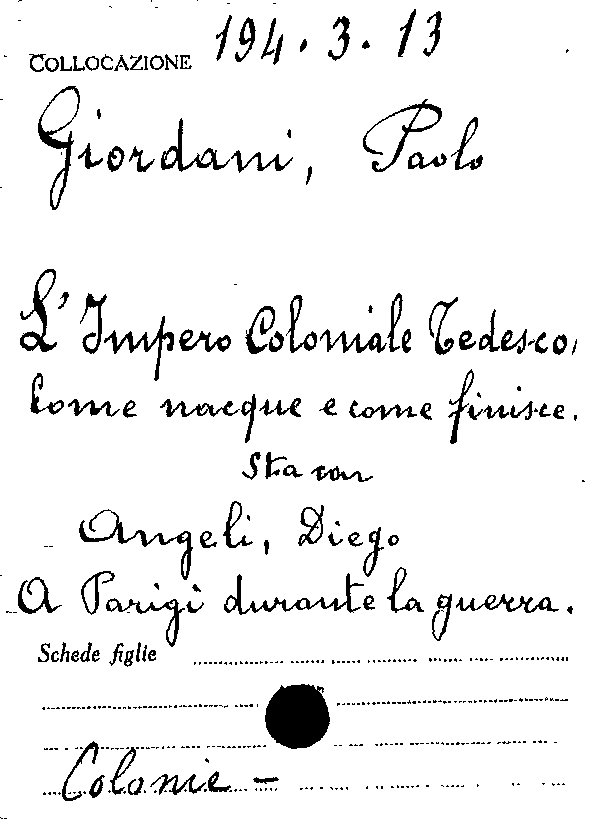 COLLOCAZIONE 194.3.13
Giordani, Paolo
L'Impero Coloniale Tedesco,
come nacque e come finisce.
Sta con
Angeli, Diego
A Parigi durante la guerra.
Schede figlie
Colonie -